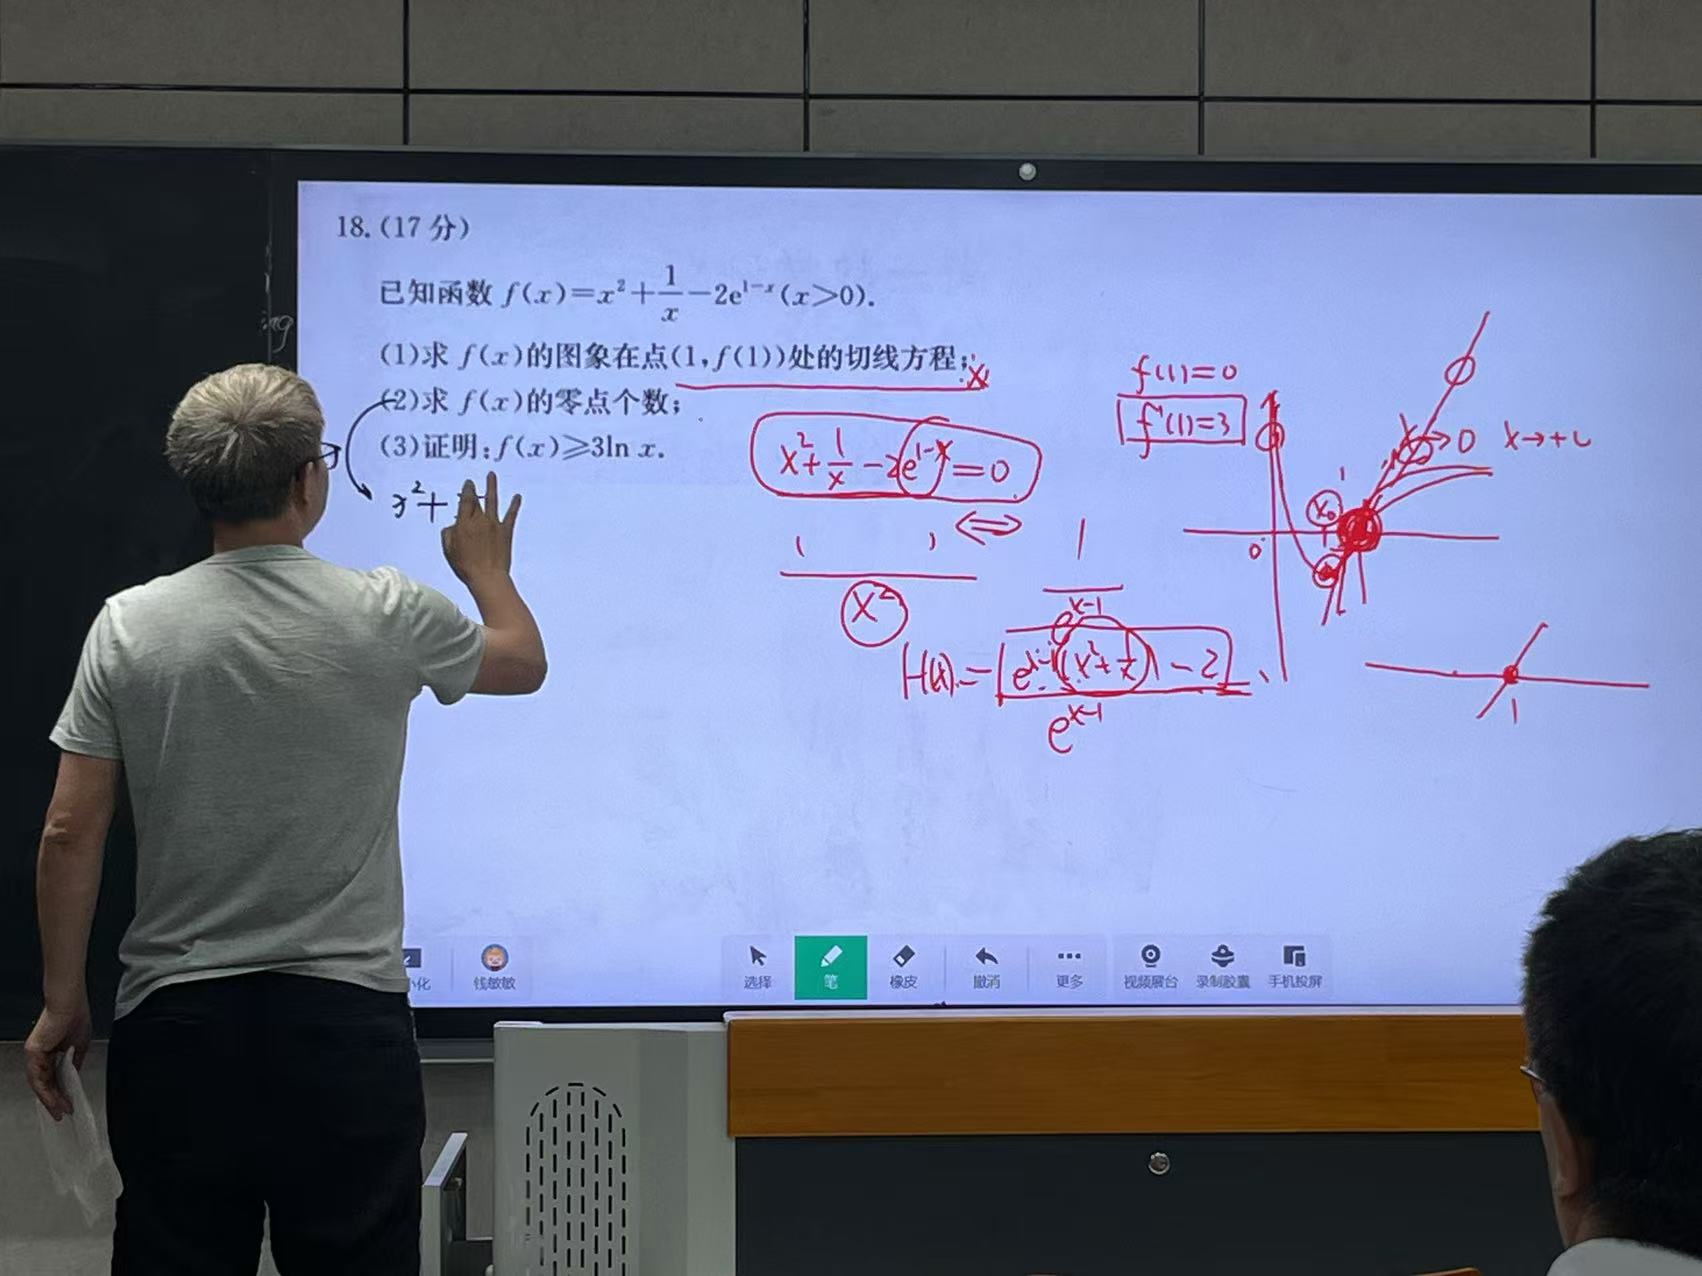 18.(17分)
已知函数 f(x)=x²+1/x-2e^{1-x}(x>0).
(1)求 f(x)的图象在点(1,f(1))处的切线方程;
(2)求 f(x)的零点个数;
(3)证明:f(x)≥3ln x.
x²+
f(1)=0
f'(1)=3
x²+1/x-2e^{1-x}=0
⇔
x²
1/e^{x-1}
H(x)=
e^{x-1}(x²+1/x)-2
e^{x-1}
→0 x→+
x₀
0
1
1
选择
笔
橡皮
撤消
更多
视频展台
录制胶囊
手机投屏
钱敏敏